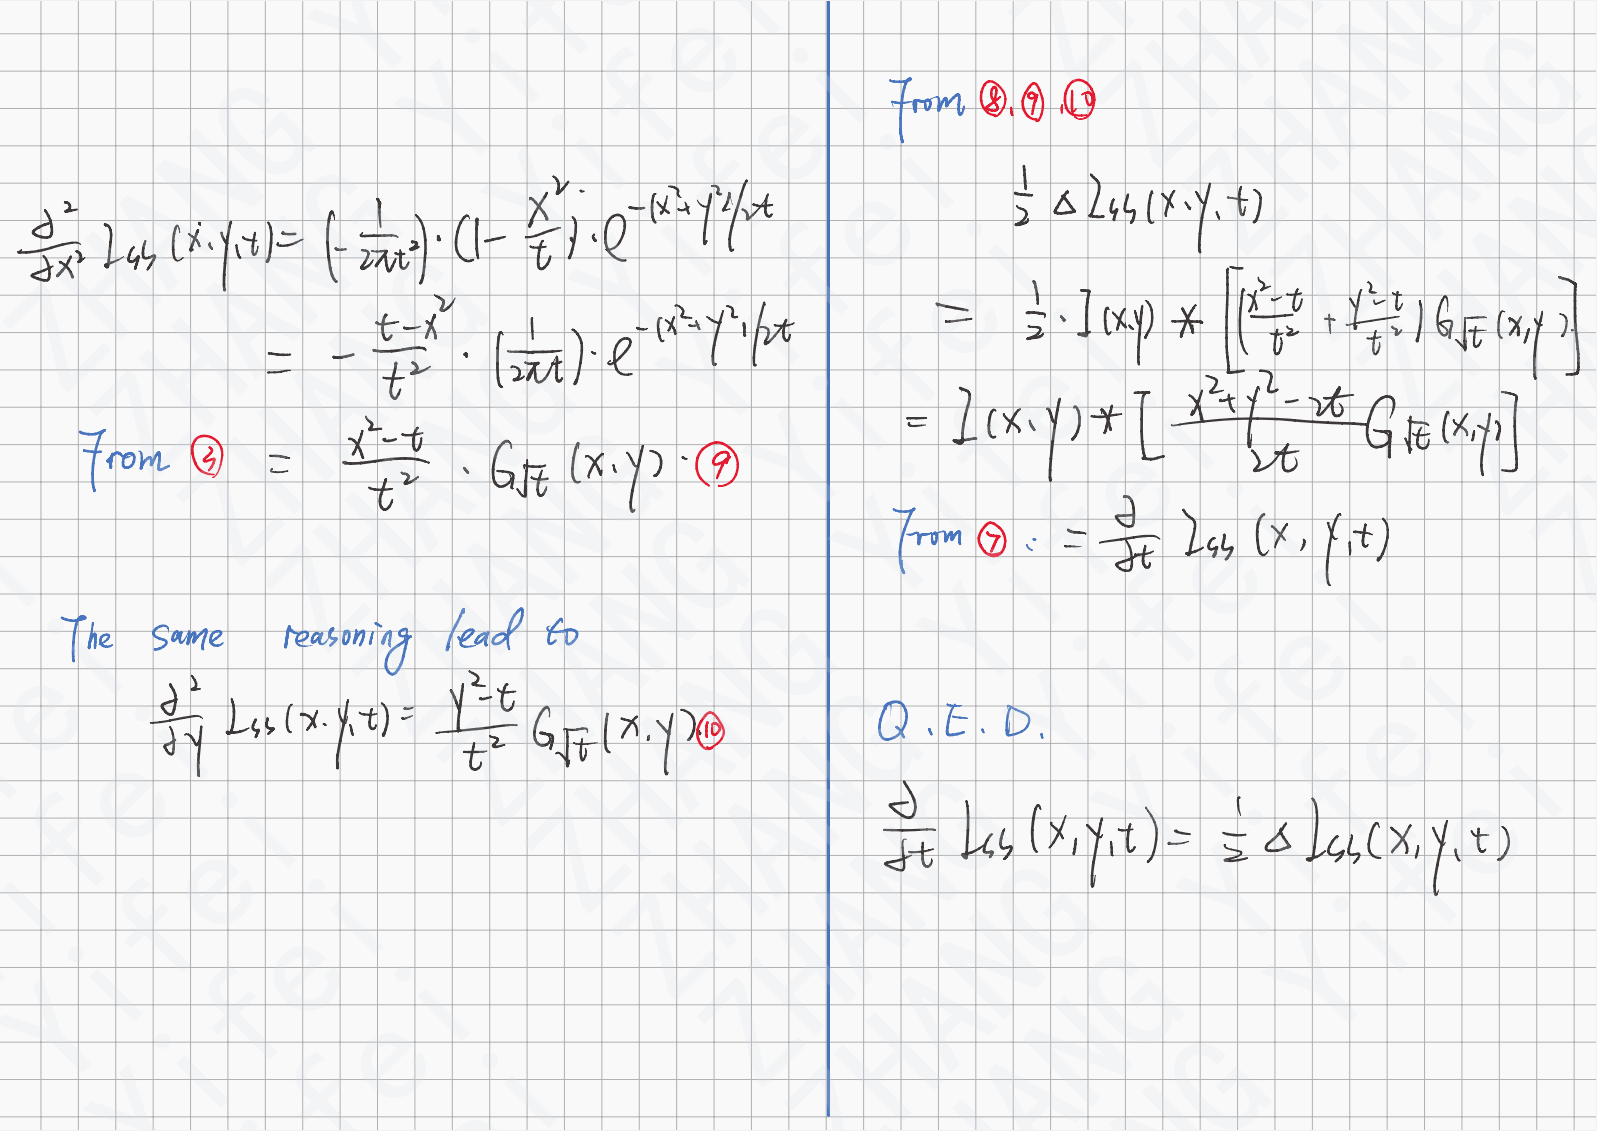 ∂²/∂x² Lss(x,y,t) = (-1/2πt²)·(1-x²/t)·e^{-(x²+y²)/2t}
= -(t-x²)/t² · (1/2πt)·e^{-(x²+y²)/2t}
From ③ = (x²-t)/t² · G√t(x,y) · ⑨
The same reasoning lead to
∂²/∂y Lss(x,y,t) = (y²-t)/t² G√t(x,y) ⑩
From ⑧,⑨,⑩
1/2 Δ Lss(x,y,t)
= 1/2 · I(x,y) * [((x²-t)/t² + (y²-t)/t²) G√t(x,y)]
= I(x,y) * [(x²+y²-2t)/2t G√t(x,y)]
From ⑦: = ∂/∂t Lss(x,y,t)
Q.E.D.
∂/∂t Lss(x,y,t) = 1/2 Δ Lss(x,y,t)
ZHANG Yifei